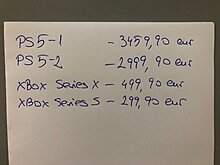 PS5-1 - 3459,90 eur
PS5-2 - 2999,90 eur
XBOX Series X - 499,90 eur
XBOX Series S - 299,90 eur